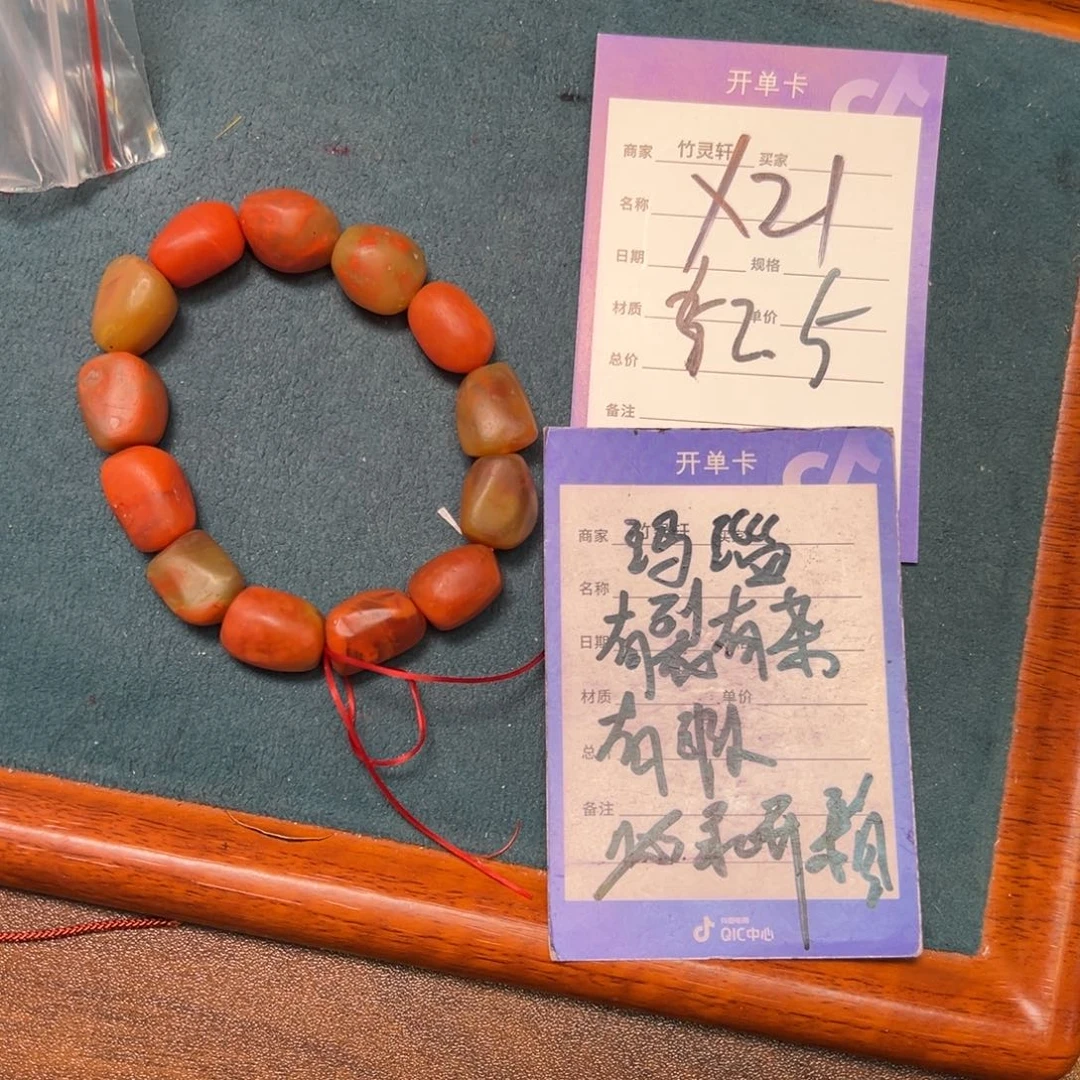 开单卡
商家 竹灵轩 买家
名称
X21
日期 规格
材质 单价
525
总价
备注
开单卡
商家
玛瑙
名称
有裂有杂
日期
材质 单价
有瑕
总
备注
QIC中心